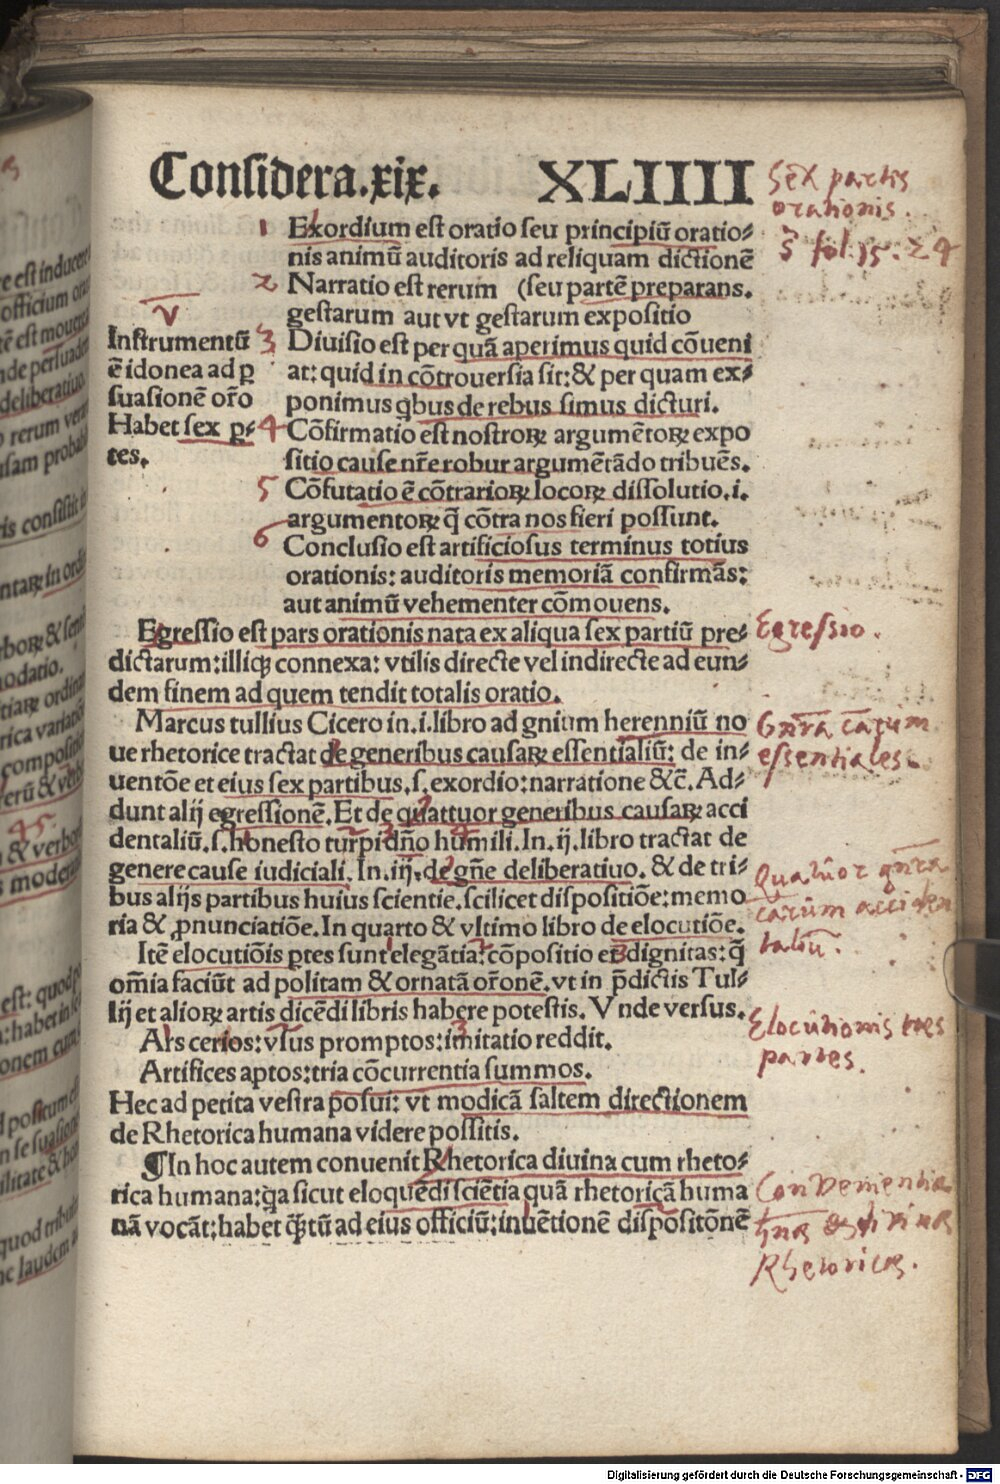 Considera.xix. XLIIII
Sex partis
orationis.
1 Exordium est oratio seu principiū oratio⸗
nis animū auditoris ad reliquam dictionē
2 Narratio est rerum (seu partē preparans.
gestarum aut vt gestarum expositio
V
Instrumentū
ē idonea ad ꝑ
suasionē or̄o
Habet sex ꝑ⸗
tes.
3 Diuisio est per quā aperimus quid cōueni
at: quid in cōtrouersia sit: & per quam ex⸗
ponimus qbus de rebus simus dicturi.
4 Cōfirmatio est nostroꝝ argumētoꝝ expo
sitio cause nr̄e robur argumētādo tribuēs.
5 Cōfutatio ē cōtrarioꝝ locoꝝ dissolutio.i.
argumentoꝝ q̄ cōtra nos fieri possunt.
6 Conclusio est artificiosus terminus totius
orationis: auditoris memoriā confirmās:
aut animū vehementer cōmouens.
Egressio est pars orationis nata ex aliqua sex partiū pre⸗
dictarum: illicꝫ connexa: vtilis directe vel indirecte ad eun⸗
dem finem ad quem tendit totalis oratio.
Egressio.
Marcus tullius Cicero in.i.libro ad gnium herenniū no
ue rhetorice tractat de generibus causaꝝ essentialiū: de in⸗
uentōe et eius sex partibus.s.exordio: narratione &c̄. Ad⸗
dunt alij egressionē. Et de quattuor generibus causaꝝ acci
dentaliū.s.honesto turpi dn̄o humili. In.ij.libro tractat de
genere cause iudiciali. In.iij.de gn̄e deliberatiuo. & de tri⸗
bus alijs partibus huius scientie.scilicet dispositiōe: memo
ria & ꝓnunciatiōe. In quarto & vltimo libro de elocutiōe.
essentiales.
Itē elocutiōis ꝑtes sunt elegātia: cōpositio et dignitas: q̄
om̄ia faciūt ad politam & ornatā or̄onē. vt in p̄dictis Tul⸗
lij et alioꝝ artis dicēdi libris habere potestis. Vnde versus.
Ars cerios: vsus promptos: imitatio reddit.
Artifices aptos: tria cōcurrentia summos.
Hec ad petita vestra posui: vt modicā saltem directionem
de Rhetorica humana videre possitis.
Elocutionis tres
partes.
¶In hoc autem conuenit Rhetorica diuina cum rheto⸗
rica humana: qa sicut eloquēdi sciētia quā rhetoricā huma
nā vocāt: habet qꝫtū ad eius officiū: inuētionē dispositōnē
Rhetoricae.
Digitalisierung gefördert durch die Deutsche Forschungsgemeinschaft - DFG